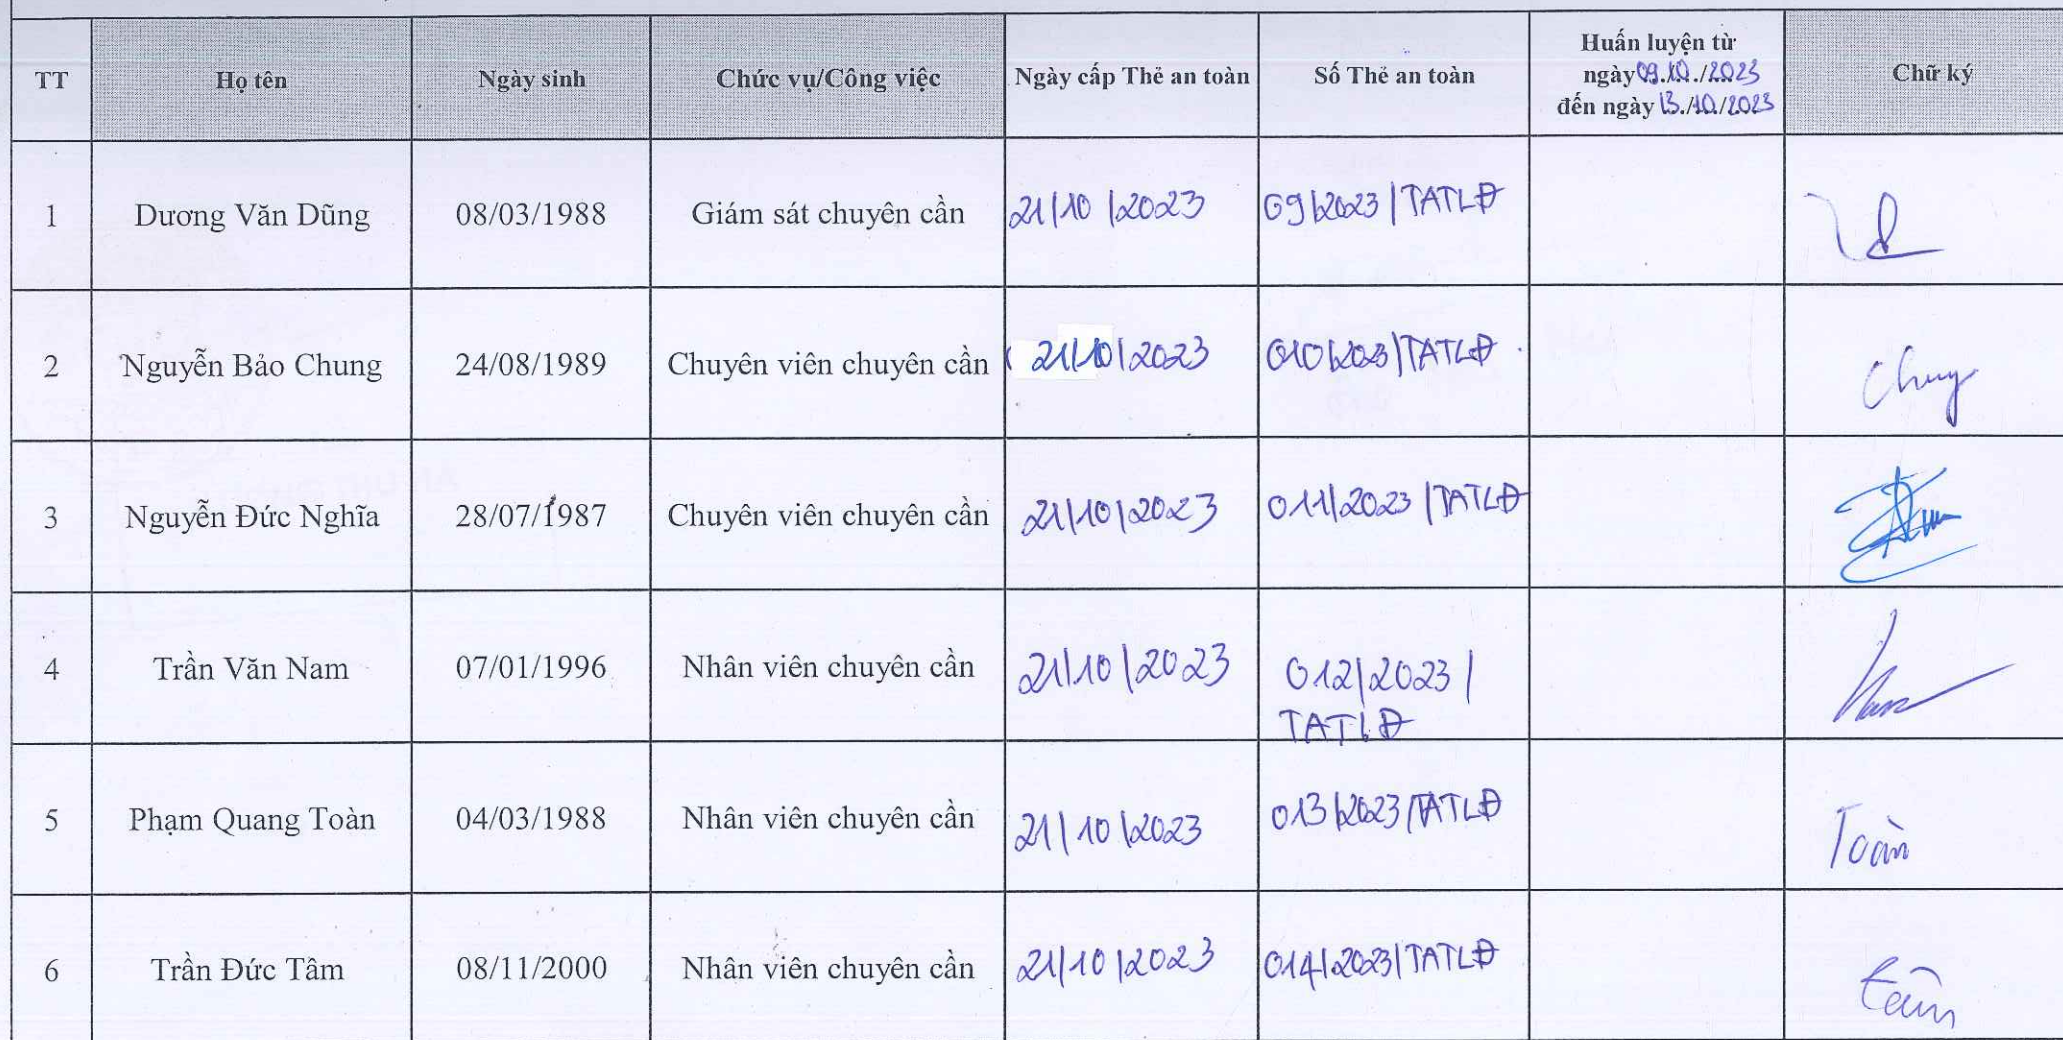 TT Họ tên Ngày sinh Chức vụ/Công việc Ngày cấp Thẻ an toàn Số Thẻ an toàn Huấn luyện từ
ngày 09.10./2023
đến ngày 13./10./2023 Chữ ký
1 Dương Văn Dũng 08/03/1988 Giám sát chuyên cần 21/10/2023 09/2023/TATLĐ
2 Nguyễn Bảo Chung 24/08/1989 Chuyên viên chuyên cần 21/10/2023 010/2023/TATLĐ Chung
3 Nguyễn Đức Nghĩa 28/07/1987 Chuyên viên chuyên cần 21/10/2023 011/2023/TATLĐ
4 Trần Văn Nam 07/01/1996 Nhân viên chuyên cần 21/10/2023 012/2023/
TATLĐ Nam
5 Phạm Quang Toàn 04/03/1988 Nhân viên chuyên cần 21/10/2023 013/2023/TATLĐ Toàn
6 Trần Đức Tâm 08/11/2000 Nhân viên chuyên cần 21/10/2023 014/2023/TATLĐ Tâm